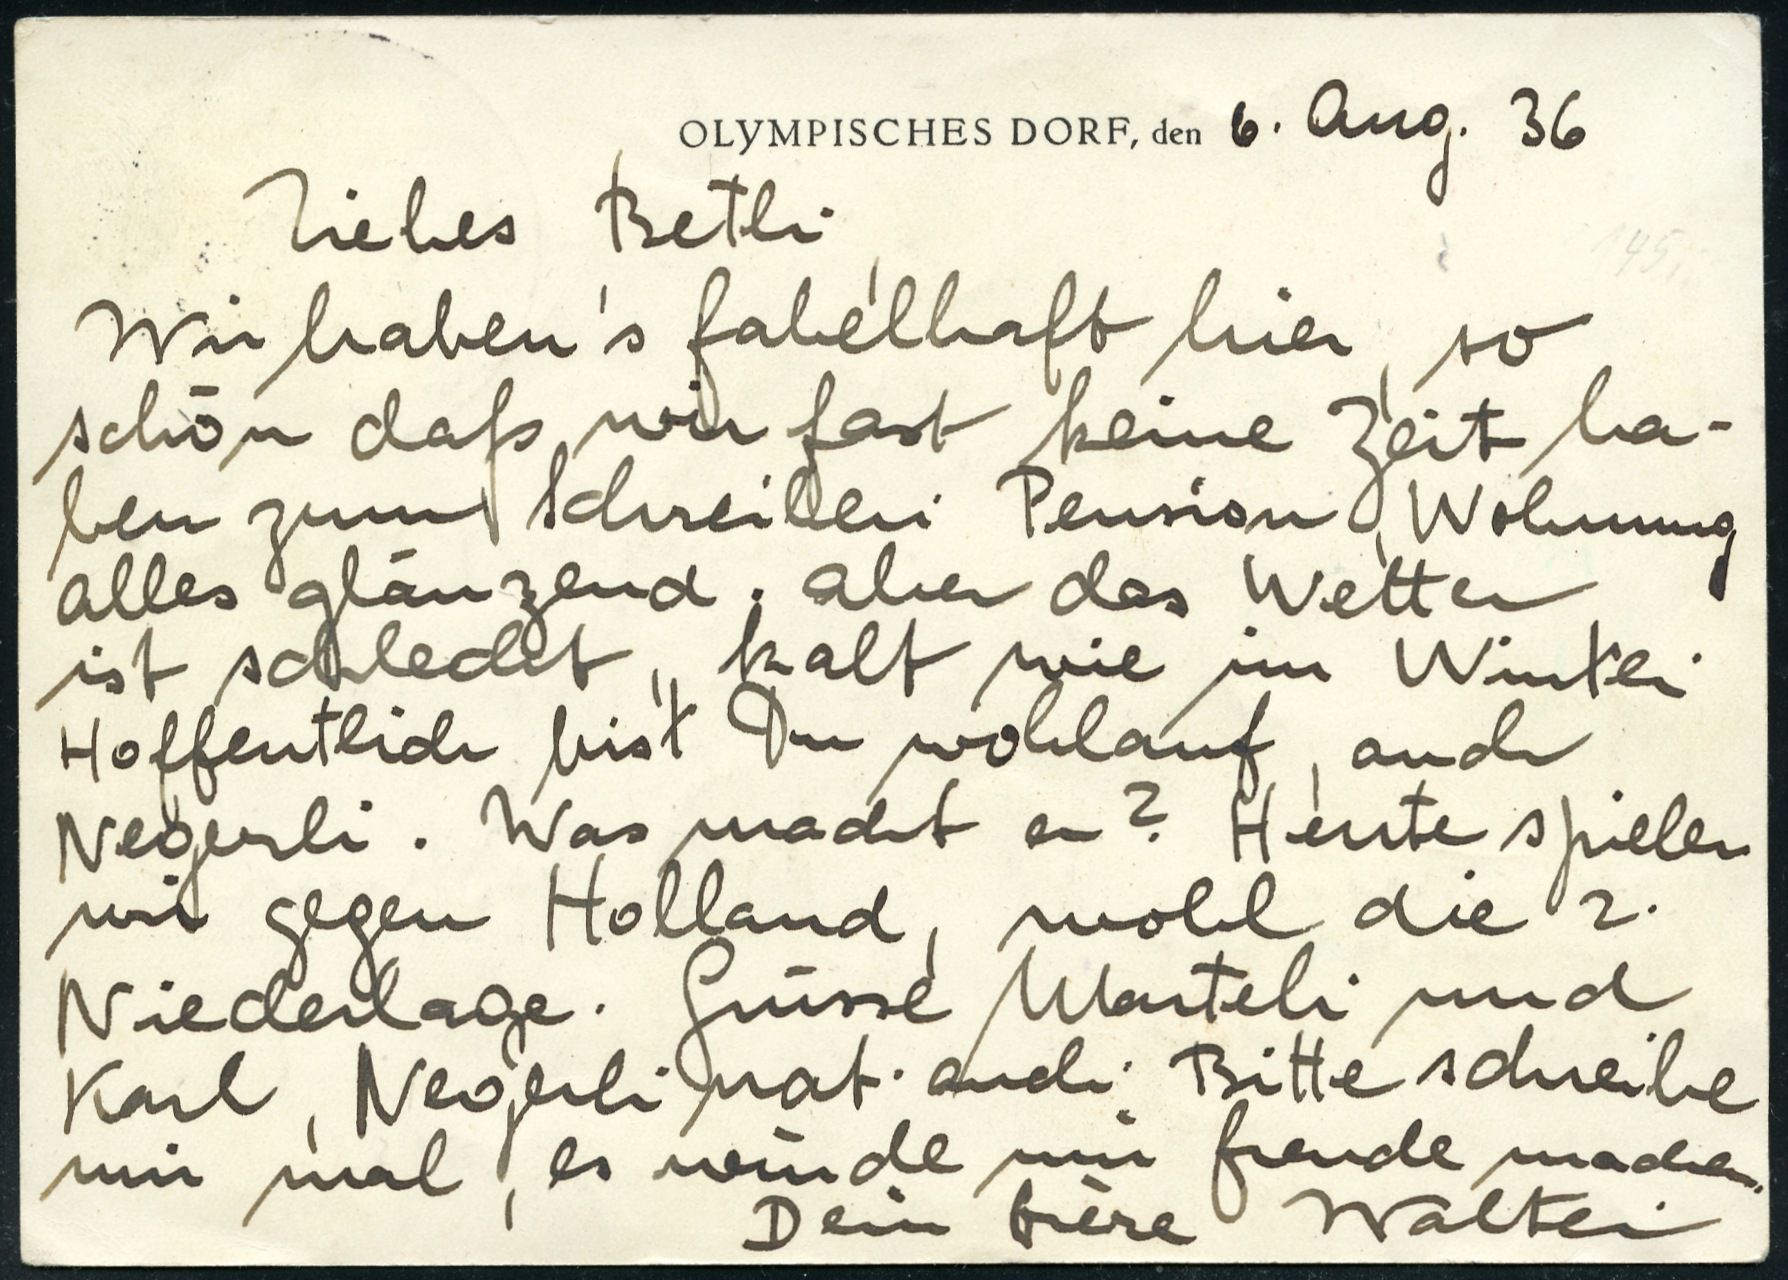 OLYMPISCHES DORF, den 6. Aug. 36
Liebes Betli,
Wir haben's fabelhaft hier, so
schön daß wir fast keine Zeit ha-
ben zum Schreiben. Pension, Wohnung
alles glänzend. aber das Wetter
ist schlecht, kalt wie im Winter.
Hoffentlich bist Du wohlauf, auch
Negerli. Was macht er? Heute spielen
wir gegen Holland, wohl die 2.
Niederlage. Grüsse Marteli und
Karl, Negerli nat. auch. Bitte schreibe
mir mal, es würde mir freude machen.
Dein frère Walter